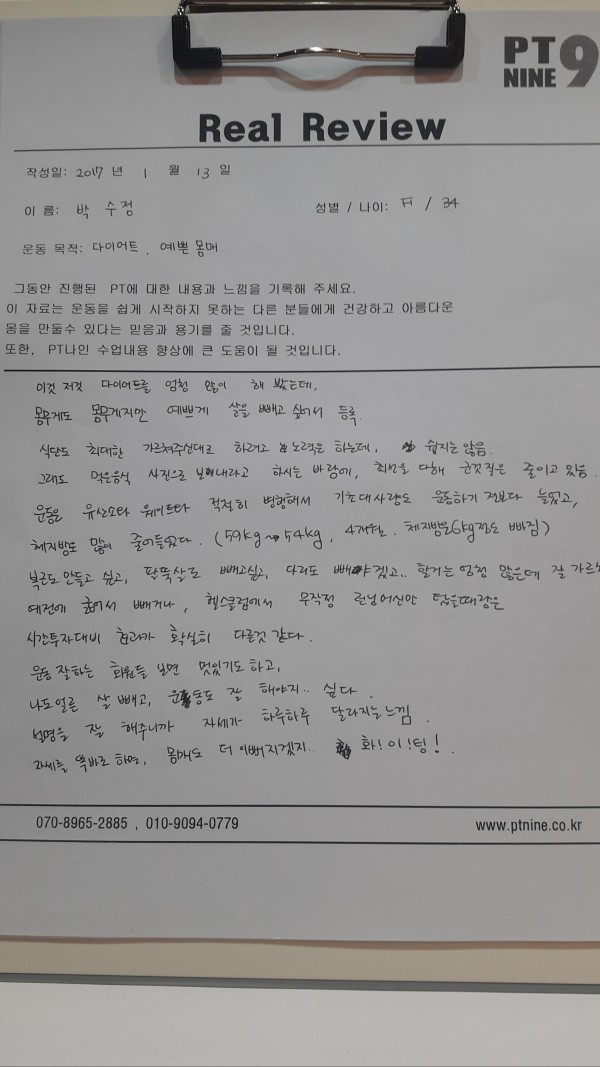 PT
NINE 9
Real Review
작성일: 2017 년 1 월 13 일
이 름: 박 수정
성별 / 나이: F / 34
운동 목적: 다이어트, 예쁜 몸매
그동안 진행된 PT에 대한 내용과 느낌을 기록해 주세요.
이 자료는 운동을 쉽게 시작하지 못하는 다른 분들에게 건강하고 아름다운
몸을 만들수 있다는 믿음과 용기를 줄 것입니다.
또한, PT나인 수업내용 향상에 큰 도움이 될 것입니다.
이것 저것 다이어트를 엄청 많이 해 봤는데,
몸무게도 몸무게지만 예쁘게 살을 빼고 싶어서 등록.
식단도 최대한 가르쳐주신대로 하려고 노력은 하는데, 쉽지는 않음.
그래도 먹은음식 사진으로 보내라고 하시는 바람에, 최선을 다해 군것질은 줄이고 있음.
운동을 유산소랑 웨이트랑 적절히 병행해서 기초대사량도 운동하기 전보다 늘었고,
체지방도 많이 줄어들었다. (59kg ~ 54kg, 4개월. 체지방만 6kg정도 빠짐)
복근도 만들고 싶고, 팔뚝살도 빼고싶고, 다리도 빼야겠고.. 할거는 엄청 많은데 잘 가르쳐
예전에 굶어서 빼거나, 헬스클럽에서 무작정 런닝머신만 탔을때랑은
시간투자대비 효과가 확실히 다른것 같다.
운동 잘하는 회원들 보면 멋있기도 하고,
나도 얼른 살 빼고, 운동도 잘 해야지.. 싶다.
설명을 잘 해주니까 자세가 하루하루 달라지는 느낌.
자세를 똑바로 하면, 몸매도 더 이뻐지겠지.. 화!이!팅!
070-8965-2885 , 010-9094-0779
www.ptnine.co.kr